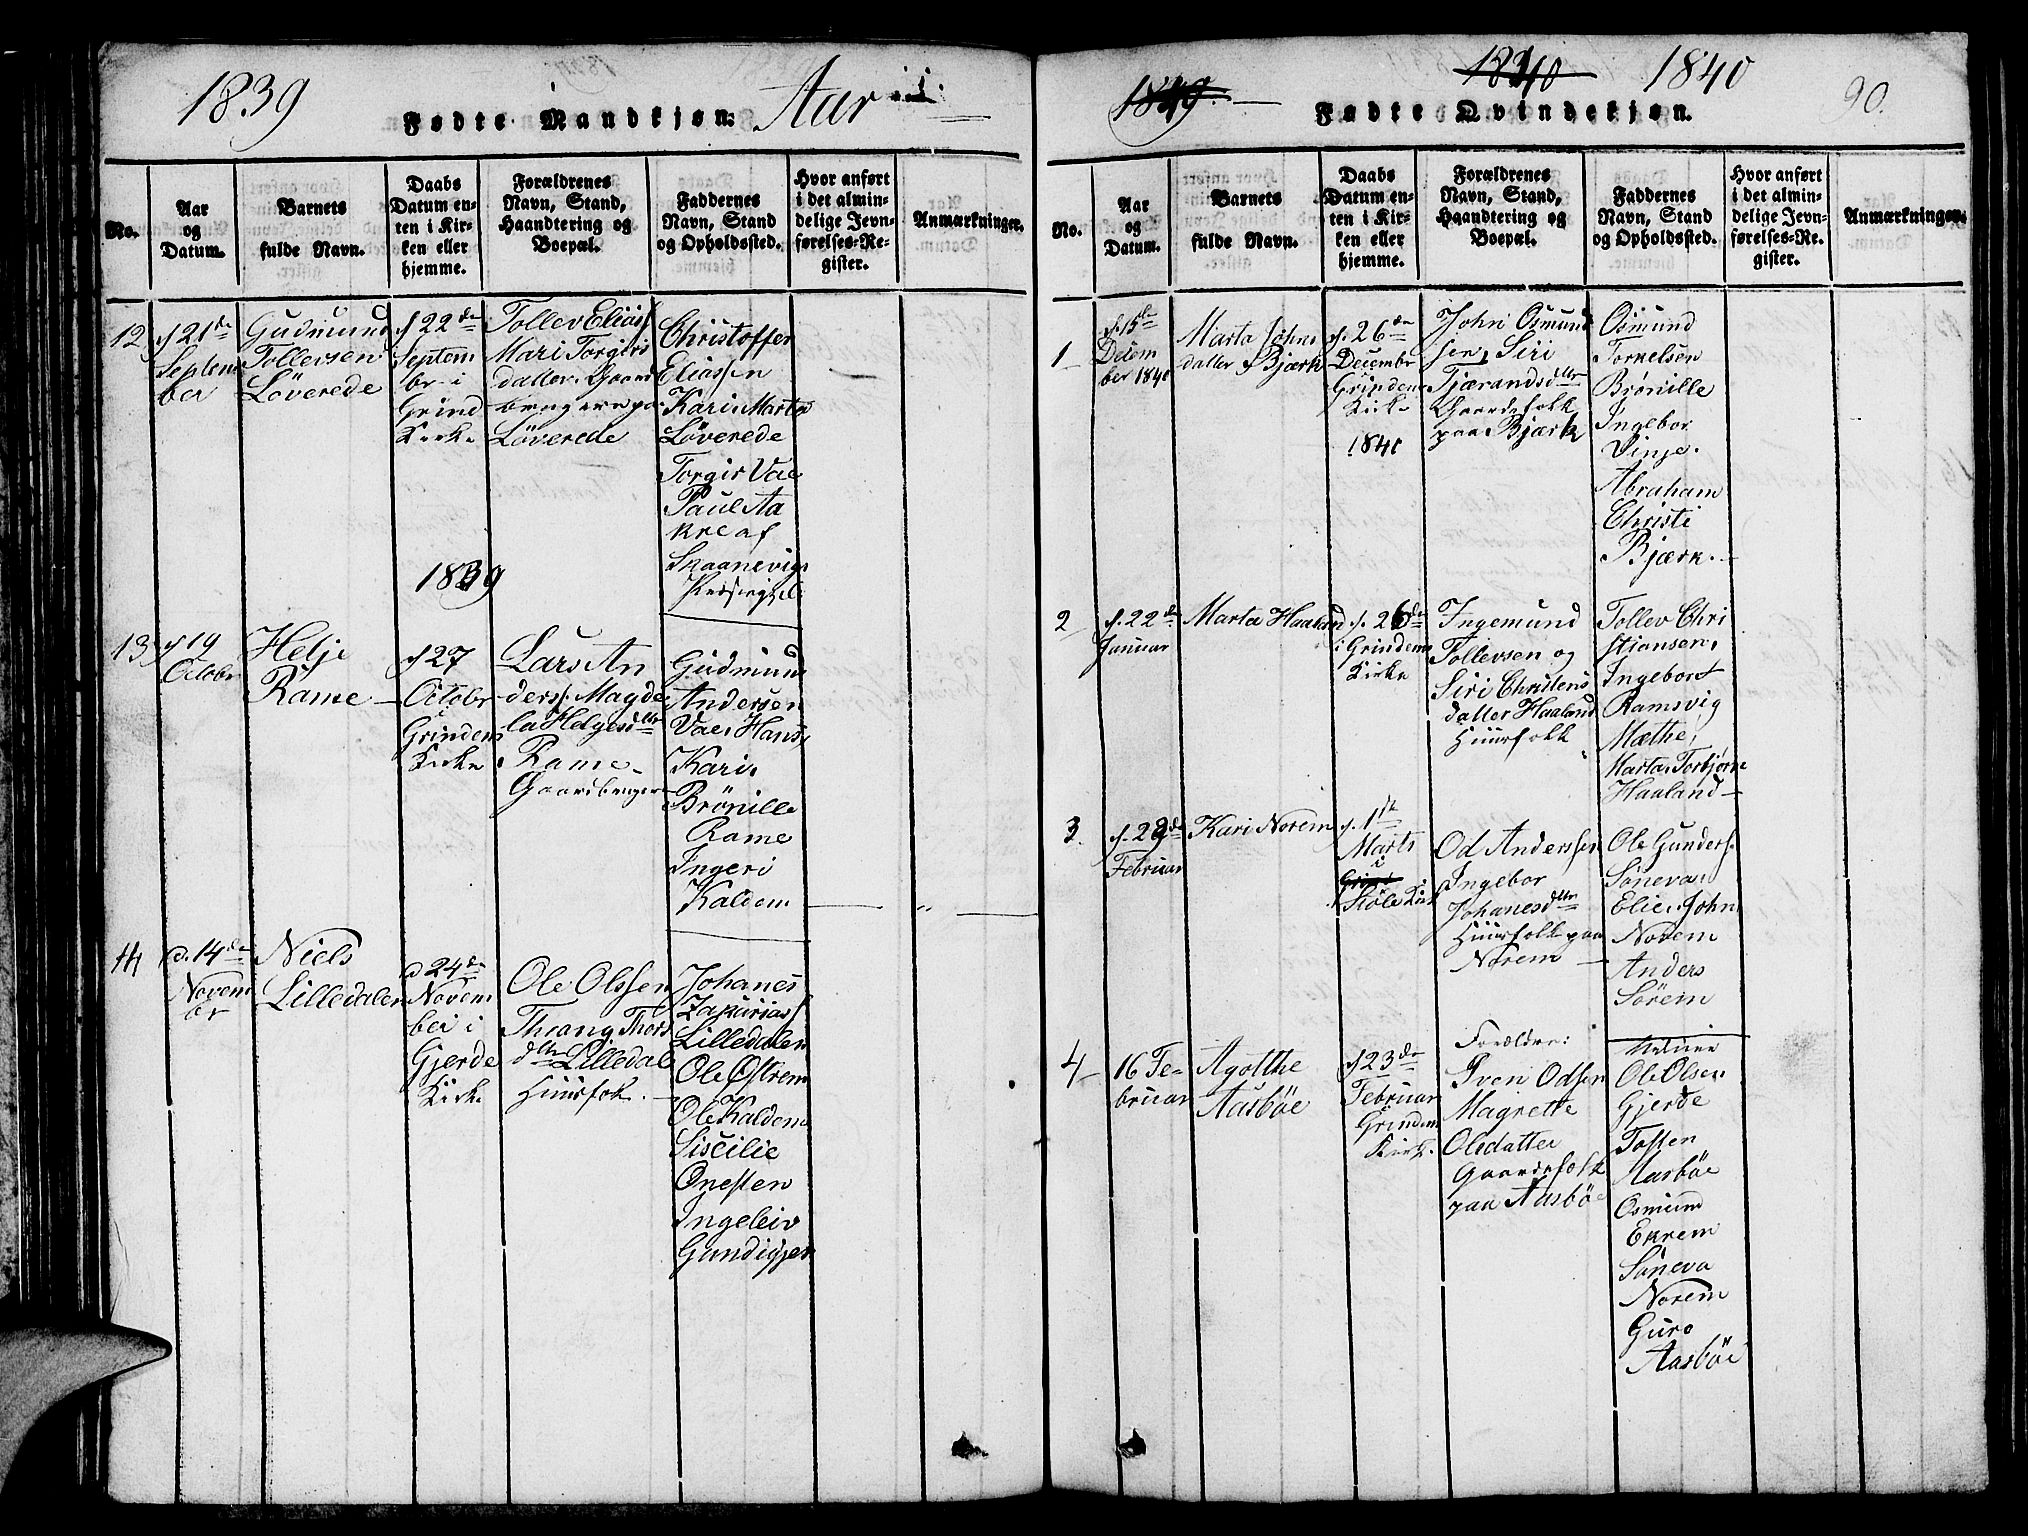 1839
Fødte Mandkjøn: Aar
No.
Aar
og
Datum.
Barnets
fulde Navn.
Daabs
Datum en-
ten i Kir-
ken eller
hjemme.
Forældrenes
Navn, Stand,
Haandtering og
Boepæl.
Faddernes
Navn, Stand
og Opholdssted.
Hvor anført
i det almin-
delige Jevn-
førelses-Re-
gister.
Anmærkninger.
12
d 21de
Septem
ber
Gudmund
Tollevsen
Löverede
d 22de
Septem
br i
Grind
Kirke
1839
Tollev Eliass
Mari Torgirs
datter. Gaard
brugere paa
Löverede
Christoffer
Eliassen
Kari, Marta
Löverede
Torgir Vae
Paul Aa
kre af
Skaanevigs
13
d 19
Octobr
Helje
Rame
d 27
Octobr
Grindens
Kirke
Lars An
derss. Magde
la Helgesdtr
Rame
Gaardbruger
Gudmund
Andersen
Vae, Hans,
Kari,
Brönille
Rame
Ingeri
Kaldem
14
d. 14de
Novem
br
Niels
Lilledalen
d 24de
Novem
ber i
Gjerde
Kirke
Ole Olssen
Thors
dtr Lilledal
Huusfok.
Johanes
Zakarias
Lilledalen
Ole Østrem
Ole Kaldem
Siscilie
Onesten
Ingeleiv
Gundigjer
1840 1840
90.
Fødte Qvindekjøn.
No.
Aar
og
Datum.
Barnets
fulde Navn.
Daabs
Datum en-
ten i Kir-
ken eller
hjemme.
Forældrenes
Navn, Stand,
Haandtering og
Boepæl.
Faddernes
Navn, Stand
og Opholdssted.
Hvor anført
i det almin-
delige Jevn-
førelses-Re-
gister.
Anmærkninger.
1
d. 15de
Desem
ber 1840
Marta Johns
datter Bjærk
d. 26de
Decembr
Grindens
Kirke
1840
John Osmund
sen, Siri
Tjærandsdtter
Gaardefolk
paa Bjærk
Osmund
Torkelsen
Brönille
Ingebor
Vinje.
Abraham
Christi
Bjærk.
2
d. 22de
Januar
Marta Haaland
d. 26de
i Grindens
Kirke
Ingemund
Tollevsen og
Siri Christens
datter Haaland
Huusfolk
Tollev Chri
stjansen,
Ingebort
Ramsvig
Mæthe,
Marta, Torbjørn
Haaland
3
Februar
Kari Norem
d. 1ste
Marts
i
Skole Kirk
Od Anderssen
Ingebor
Johanesdtter
Huusfolk paa
Norem
Ole Gunders.
Söneva
Elie, John
Norem
Anders
Sörem
4
16 Fe-
bruar
Agotthe
Aasböe
d 23de
Februar
Grindens
Kirk.
Forældre:
Sven Odsen
Magrette
Olsdatter
Gaardefolk
paa Aasböe
Ole Olsen
Gjerde
Tosten
Aasböe
Osmund
Ekrem
Söneva
Norem
Guro
Aasböe